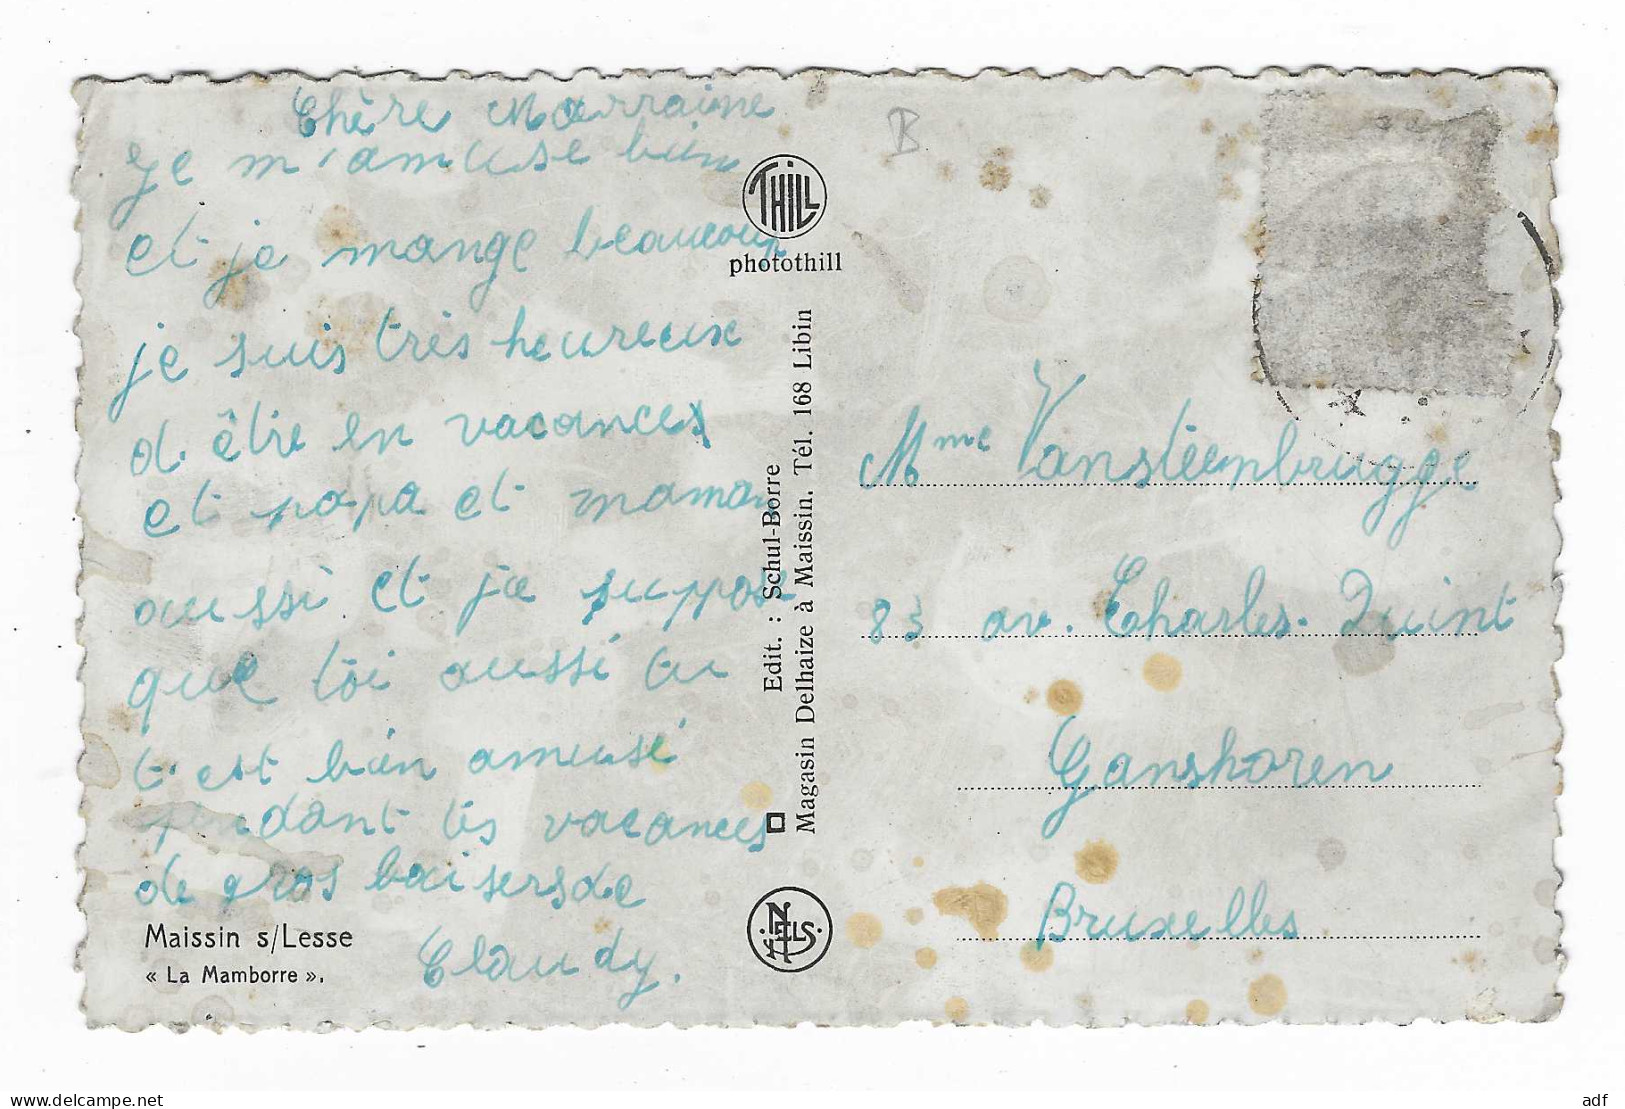 Chère Marraine
Je m'amuse bien
et je mange beaucoup
je suis très heureux
d'être en vacances
et papa et maman
aussi et je suppose
que toi aussi tu
t'est bien amusé
pendant tes vacances
de gros baisers de
Claudy.
Maissin s/Lesse
« La Mamborre ».
THILL
photothill
Edit. : Schul-Borre
Magasin Delhaize à Maissin. Tél. 168 Libin
NELS
B
Mme Vansteenbrugge
83 av. Charles. Quint
Ganshoren
Bruxelles
Delcampe.net
adf